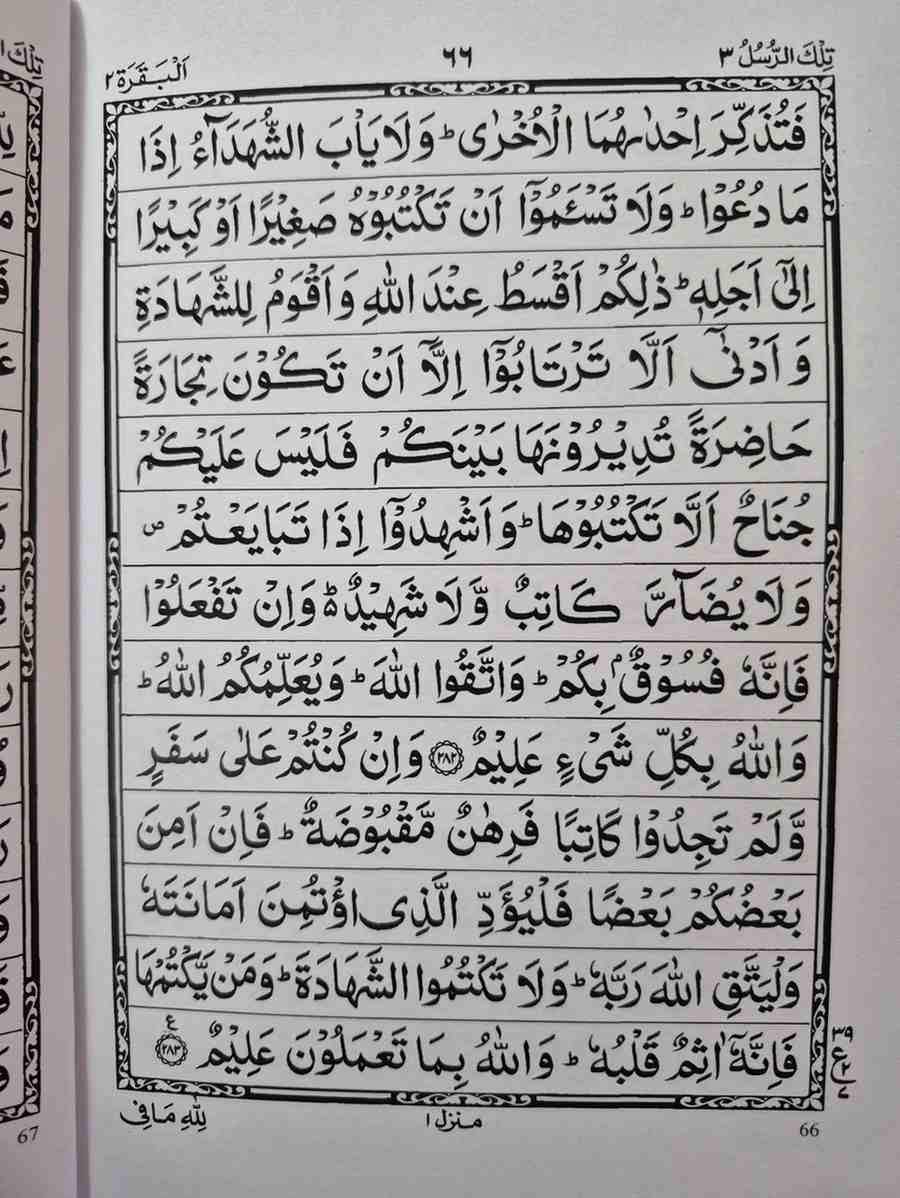 تِلْكَ الرُّسُلُ ٣
٦٦
اَلْبَقَرَة ٢
فَتُذَكِّرَ اِحْدٰىهُمَا الْاُخْرٰى ؕ وَلَا يَاْبَ الشُّهَدَآءُ اِذَا
مَا دُعُوْا ؕ وَلَا تَسْـَٔمُوْۤا اَنْ تَكْتُبُوْهُ صَغِيْرًا اَوْ كَبِيْرًا
اِلٰۤى اَجَلِهٖ ؕ ذٰلِكُمْ اَقْسَطُ عِنْدَ اللّٰهِ وَ اَقْوَمُ لِلشَّهَادَةِ
وَ اَدْنٰۤى اَلَّا تَرْتَابُوْۤا اِلَّاۤ اَنْ تَكُوْنَ تِجَارَةً
حَاضِرَةً تُدِيْرُوْنَهَا بَيْنَكُمْ فَلَيْسَ عَلَيْكُمْ
جُنَاحٌ اَلَّا تَكْتُبُوْهَا ؕ وَ اَشْهِدُوْۤا اِذَا تَبَايَعْتُمْ ۪
وَلَا يُضَآرَّ كَاتِبٌ وَّلَا شَهِيْدٌ ؕ۬ وَاِنْ تَفْعَلُوْا
فَاِنَّهٗ فُسُوْقٌۢ بِكُمْ ؕ وَاتَّقُوا اللّٰهَ ؕ وَيُعَلِّمُكُمُ اللّٰهُ ؕ
وَاللّٰهُ بِكُلِّ شَىْءٍ عَلِيْمٌ ﴿٢٨٢﴾ وَاِنْ كُنْتُمْ عَلٰى سَفَرٍ
وَّلَمْ تَجِدُوْا كَاتِبًا فَرِهٰنٌ مَّقْبُوْضَةٌ ؕ فَاِنْ اَمِنَ
بَعْضُكُمْ بَعْضًا فَلْيُؤَدِّ الَّذِى اؤْتُمِنَ اَمَانَتَهٗ
وَلْيَتَّقِ اللّٰهَ رَبَّهٗ ؕ وَلَا تَكْتُمُوا الشَّهَادَةَ ؕ وَمَنْ يَّكْتُمْهَا
فَاِنَّهٗۤ اٰثِمٌ قَلْبُهٗ ؕ وَاللّٰهُ بِمَا تَعْمَلُوْنَ عَلِيْمٌ ﴿٢٨٣﴾ ع
منزل ١
لِلّٰهِ مَا فِى
66
67